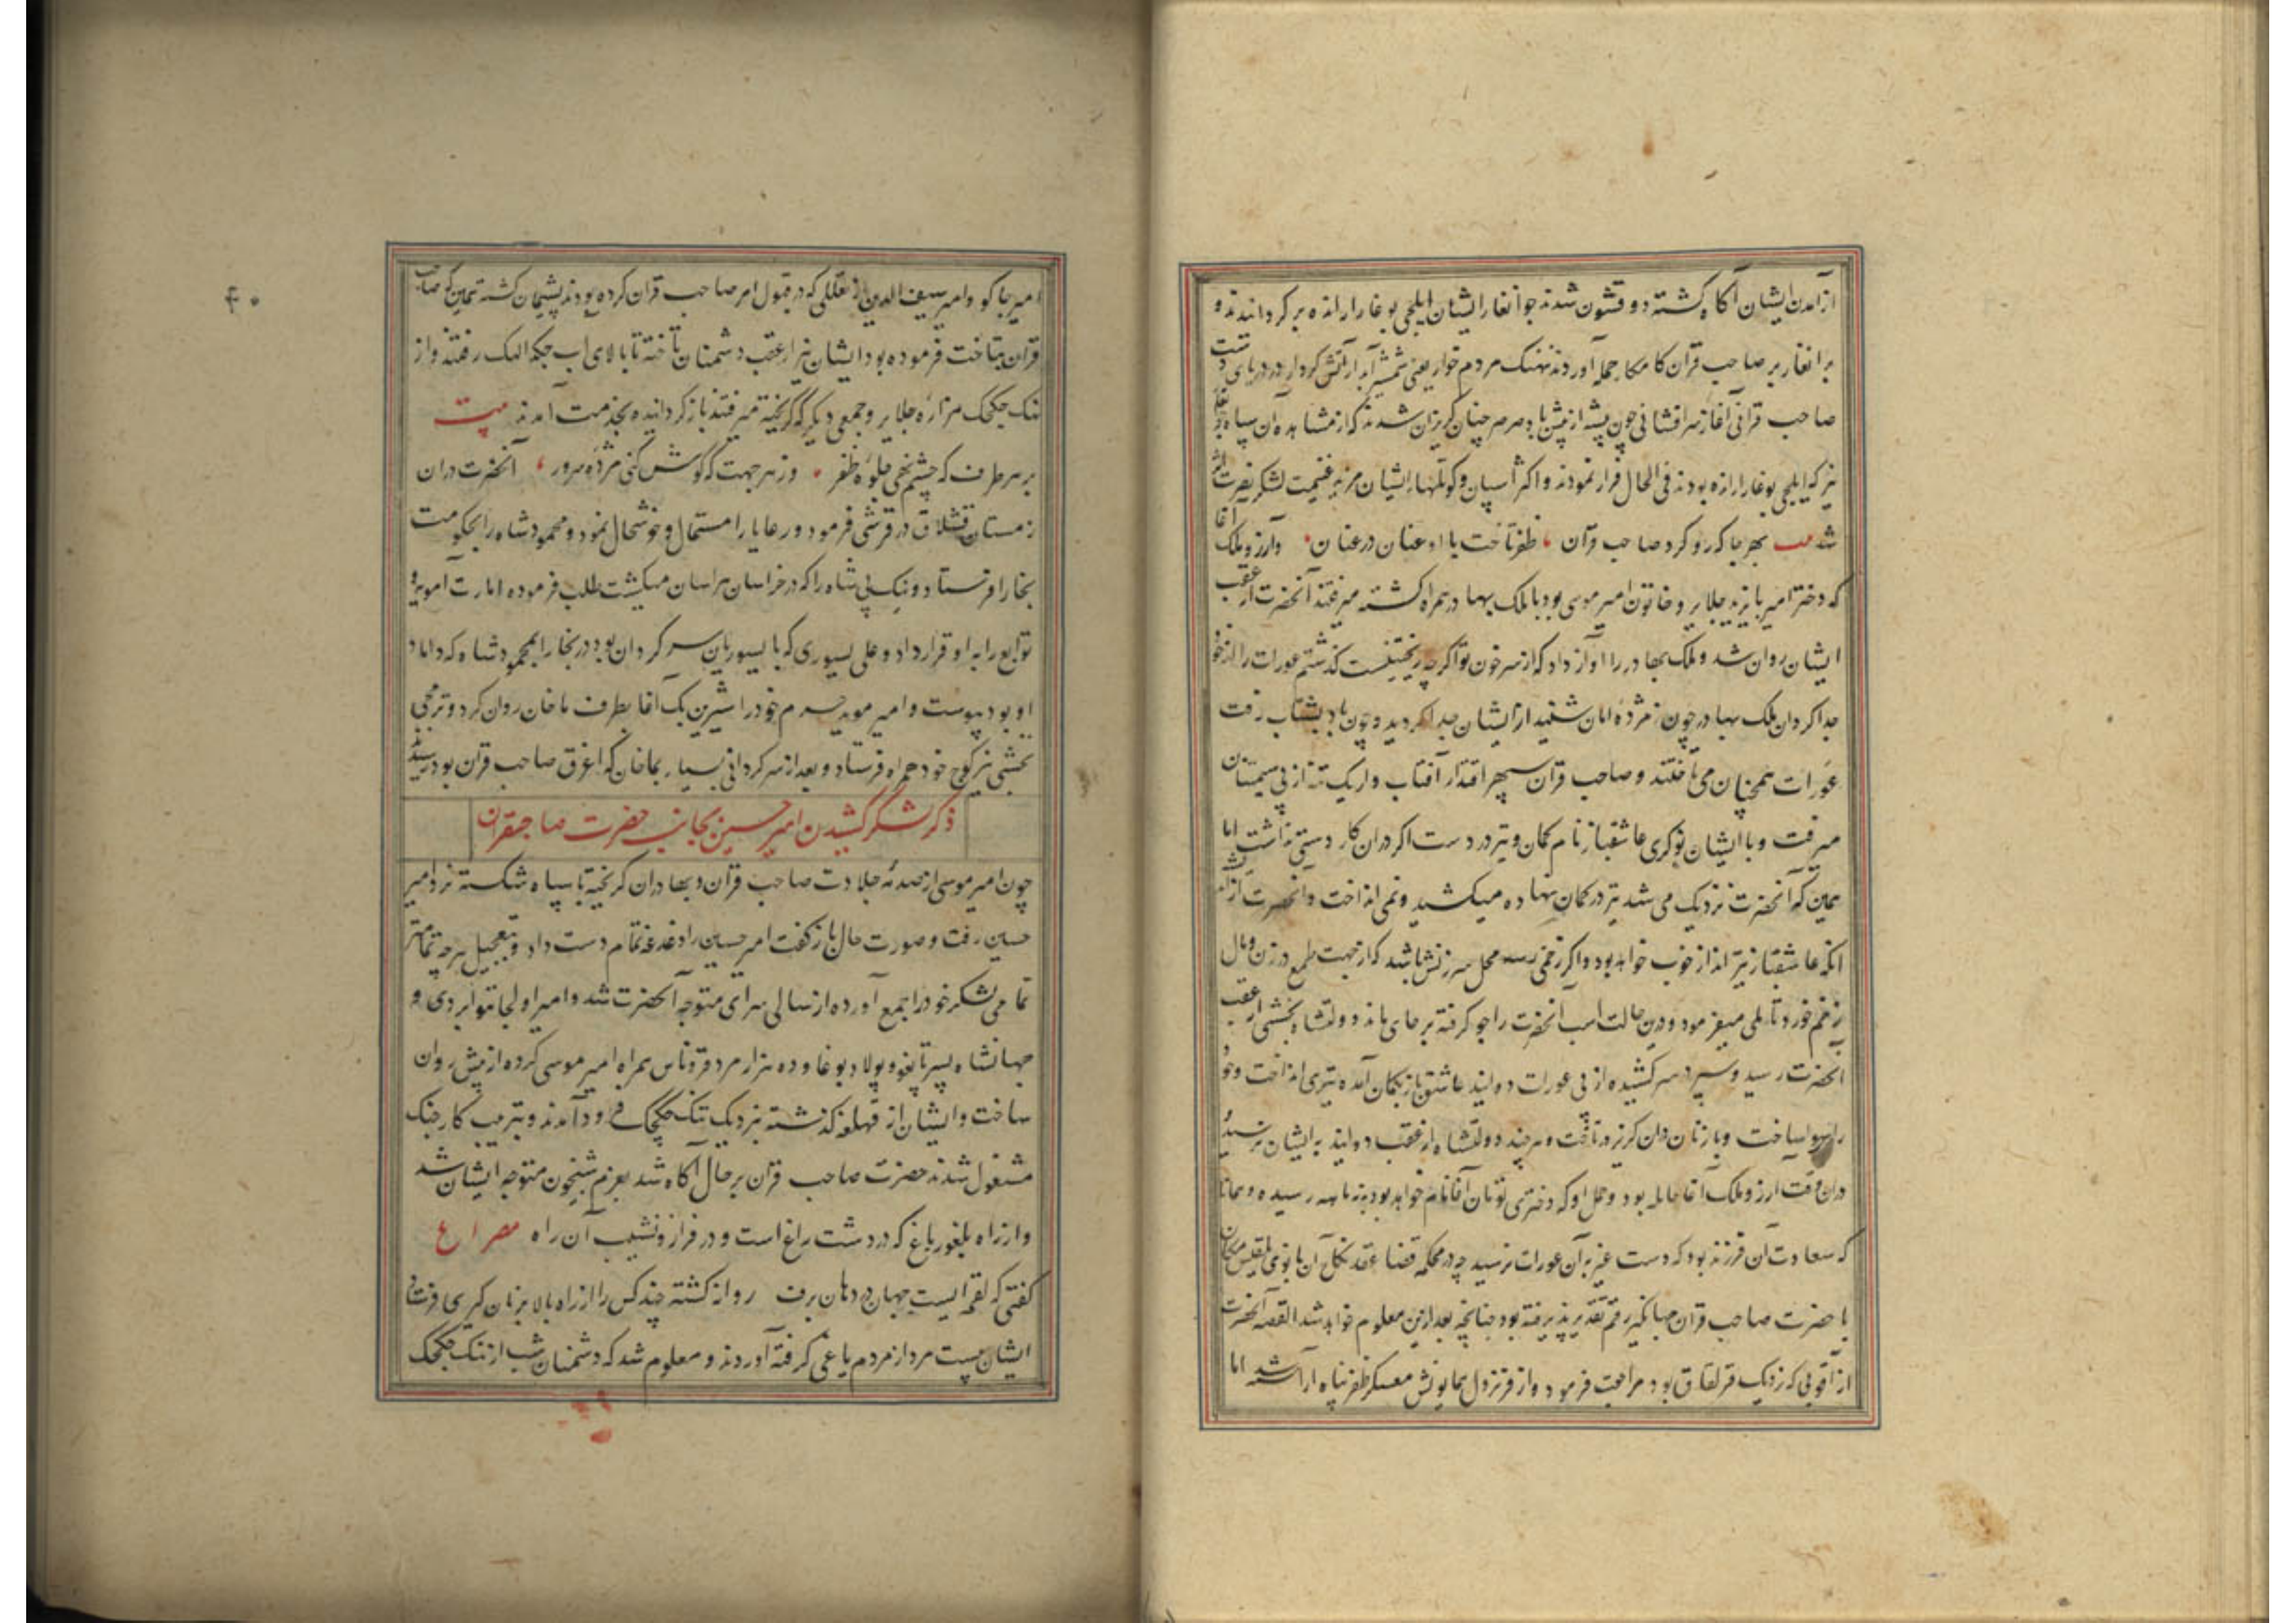 از آمدن ایشان آگاه گشته دو قشون شدند جوانغار ایشان ایلچی بوغا را رانده بر کردانیدند و
برانغار بر صاحب قران کامکار حمله آوردند نهنک مردم خوار یعنی شمشیر آبدار آتش کردار در دریای دست
صاحب قرانی آغاز سرافشانی چون پشه از پیش باد صرصر چنان کریزان شدند که از مشاهده آن سپاه جوانغار
نیز که ایلچی بوغا را رانده بودند فی الحال فرار نمودند و اکثر اسپان و کوتلهاء ایشان غنیمت لشکر نصرت اثر
شد بیت بهر جا که رو کرد صاحب قران ظفر تاخت با او عنان در عنان وآرزو ملک آغا
که دختر امیر بایزید جلایر و خاتون امیر موسی بود با ملک بهادر همراه کشته میرفتند آنحضرت از عقب
ایشان روان شد و ملک بهادر را آواز داد که از سر خون تو اکرچه ریختنیست کذشتم عورات را از خود
جدا کردان ملک بهادر چون مژدهٔ امان شنید از ایشان جدا کردید و چون باد بشتاب رفت
عورات همچنان می تاختند و صاحب قران سپهر اقتدار آفتاب وار یک تنه از پی سیمتنان
میرفت و با ایشان نوکری عاشقباز نام کمان و تیر در دست اکر در آن کار دستی نداشت اما
همین که آنحضرت نزدیک می شد تیر در کمان نهاده میکشید و نمی انداخت و آنحضرت از اندیشه
آنکه عاشقباز تیر انداز خوب خواهد بود و اکر زخمی رسد محل سرزنش باشد که از جهت طمع در زن و مال
زخم خورد تاملی میفرمود و درین حالت اسب آنحضرت را جو کرفته بر جای ماند و دولتشاه بخشی از عقب
آنحضرت رسید و سپر در سر کشیده از پی عورات دوانید عاشق باز بکمان آمده تیری انداخت و خود
را رسوا ساخت و با زنان دران کریز درتافت و هر چند دولتشاه از عقب دوانید به ایشان نرسید
دران وقت آرزو ملک آغا حامله بود و حمل او که دختری تومان آغا نام خواهد بود به نه ماهه رسیده و همانا
که سعادت آن فرزند بود که دست غیر به آن عورات نرسید چه در محکمه قضا عقد نکاح آن بانوی بلقیس مکان
با حضرت صاحب قران جهانکیر رقم تقدیر پذیرفته بود چنانچه بعد ازین معلوم خواهد شد القصه آنحضرت
از آقوبی که نزدیک قزلقاق بود مراجعت فرمود و از فر نزول همایونش معسکر ظفر پناه آراسته شد اما
۴۰
امیر جاکو وامیر سیف الدین از تعللی که در قبول امر صاحب قران کرده بودند پشیمان کشته همین که صاحب
قران بتاخت فرموده بود ایشان نیز از عقب دشمنان تاخته تا بالای اب چکدالیک رفتند و از
تنک چکچک هزاره جلایر و جمعی دیکر که کریخته میرفتند باز کردانیده بخدمت آمدند بیت
بر هر طرف که چشم نهی جلوهٔ ظفر وز هر جهت که کوش کنی مژدهٔ سرور آنحضرت دران
زمستان قشلاق در قرشی فرمود و رعایا را مستمال و خوشحال نمود و محمود شاه را بحکومت
بخارا فرستاد و نیک پی شاه را که در خراسان هراسان میکشت طلب فرموده امارت آمویه و
توابع را به او قرار داد و علی یسوری که با یسوریان سرکردان بود در بخارا بمحمود شاه که داماد
او بود پیوست و امیر موید حرم خود را شیرین بک آغا بطرف ماخان روان کرد و ترمجی
بخشی نیز کوچ خود همراه فرستاد و بعد از سرکردانی بسیار بماخان که اغرق صاحب قران بود رسیدند
ذکر لشکر کشیدن امیر حسین بجانب حضرت صاحبقران
چون امیر موسی از صدمهٔ جلادت صاحب قران و بهادران کریخته با سپاه شکسته نزد امیر
حسین رفت و صورت حال باز کفت امیر حسین را دغدغه تمام دست داد و بتعجیل هر چه تمامتر
تمامی لشکر خود را جمع آورده از سالی سرای متوجه آنحضرت شد و امیر اولجایتو ابردی و
جهانشاه پسر تایغو و پولاد بوغا و ده هزار مرد قوناس همراه امیر موسی کرده از پیش روان
ساخت و ایشان از قهلغه کذشته نزدیک تنک چکچک فرود آمدند و بترتیب کار جنک
مشغول شدند حضرت صاحب قران بر حال آکاه شد بعزم شبخون متوجه ایشان شد
و از راه بلغور باغ که در دشت راغ است و در فراز و نشیب آن راه مصراع
کفتی که لقمه ایست جهان در دهان برف روانه کشته چند کس را از راه بالا بزبان کیری فرستاد
ایشان بیست مرد از مردم یاغی کرفته آوردند و معلوم شد که دشمنان شب از تنک چکچک